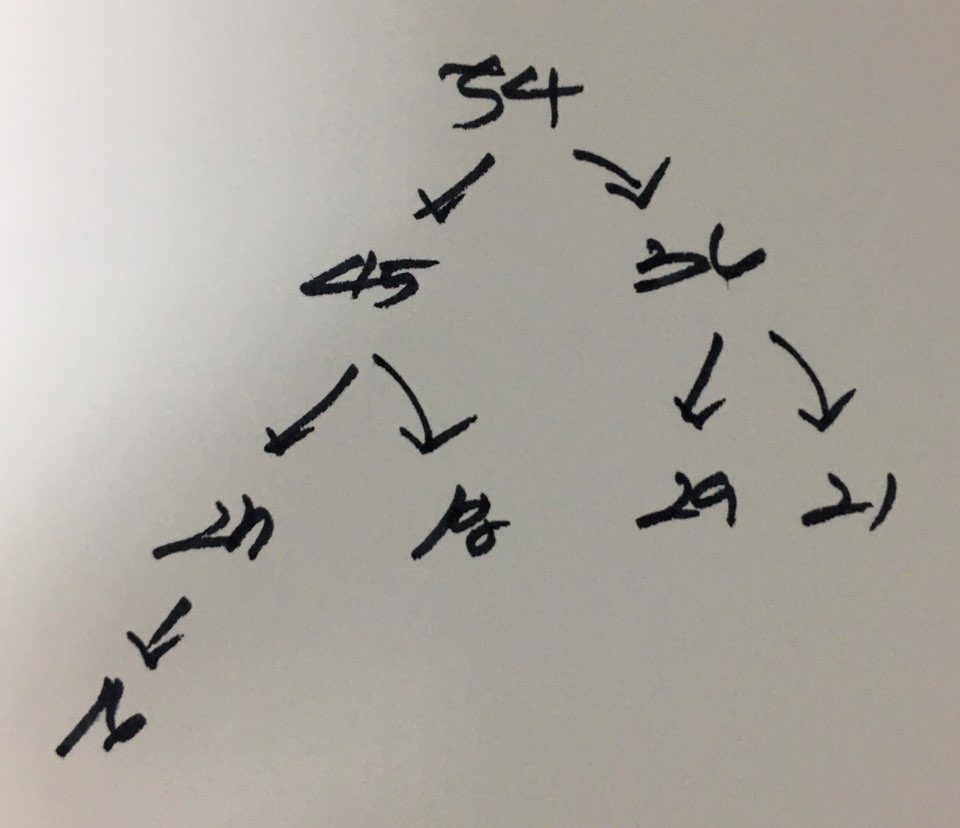 54
45 36
27 18 29 21
16